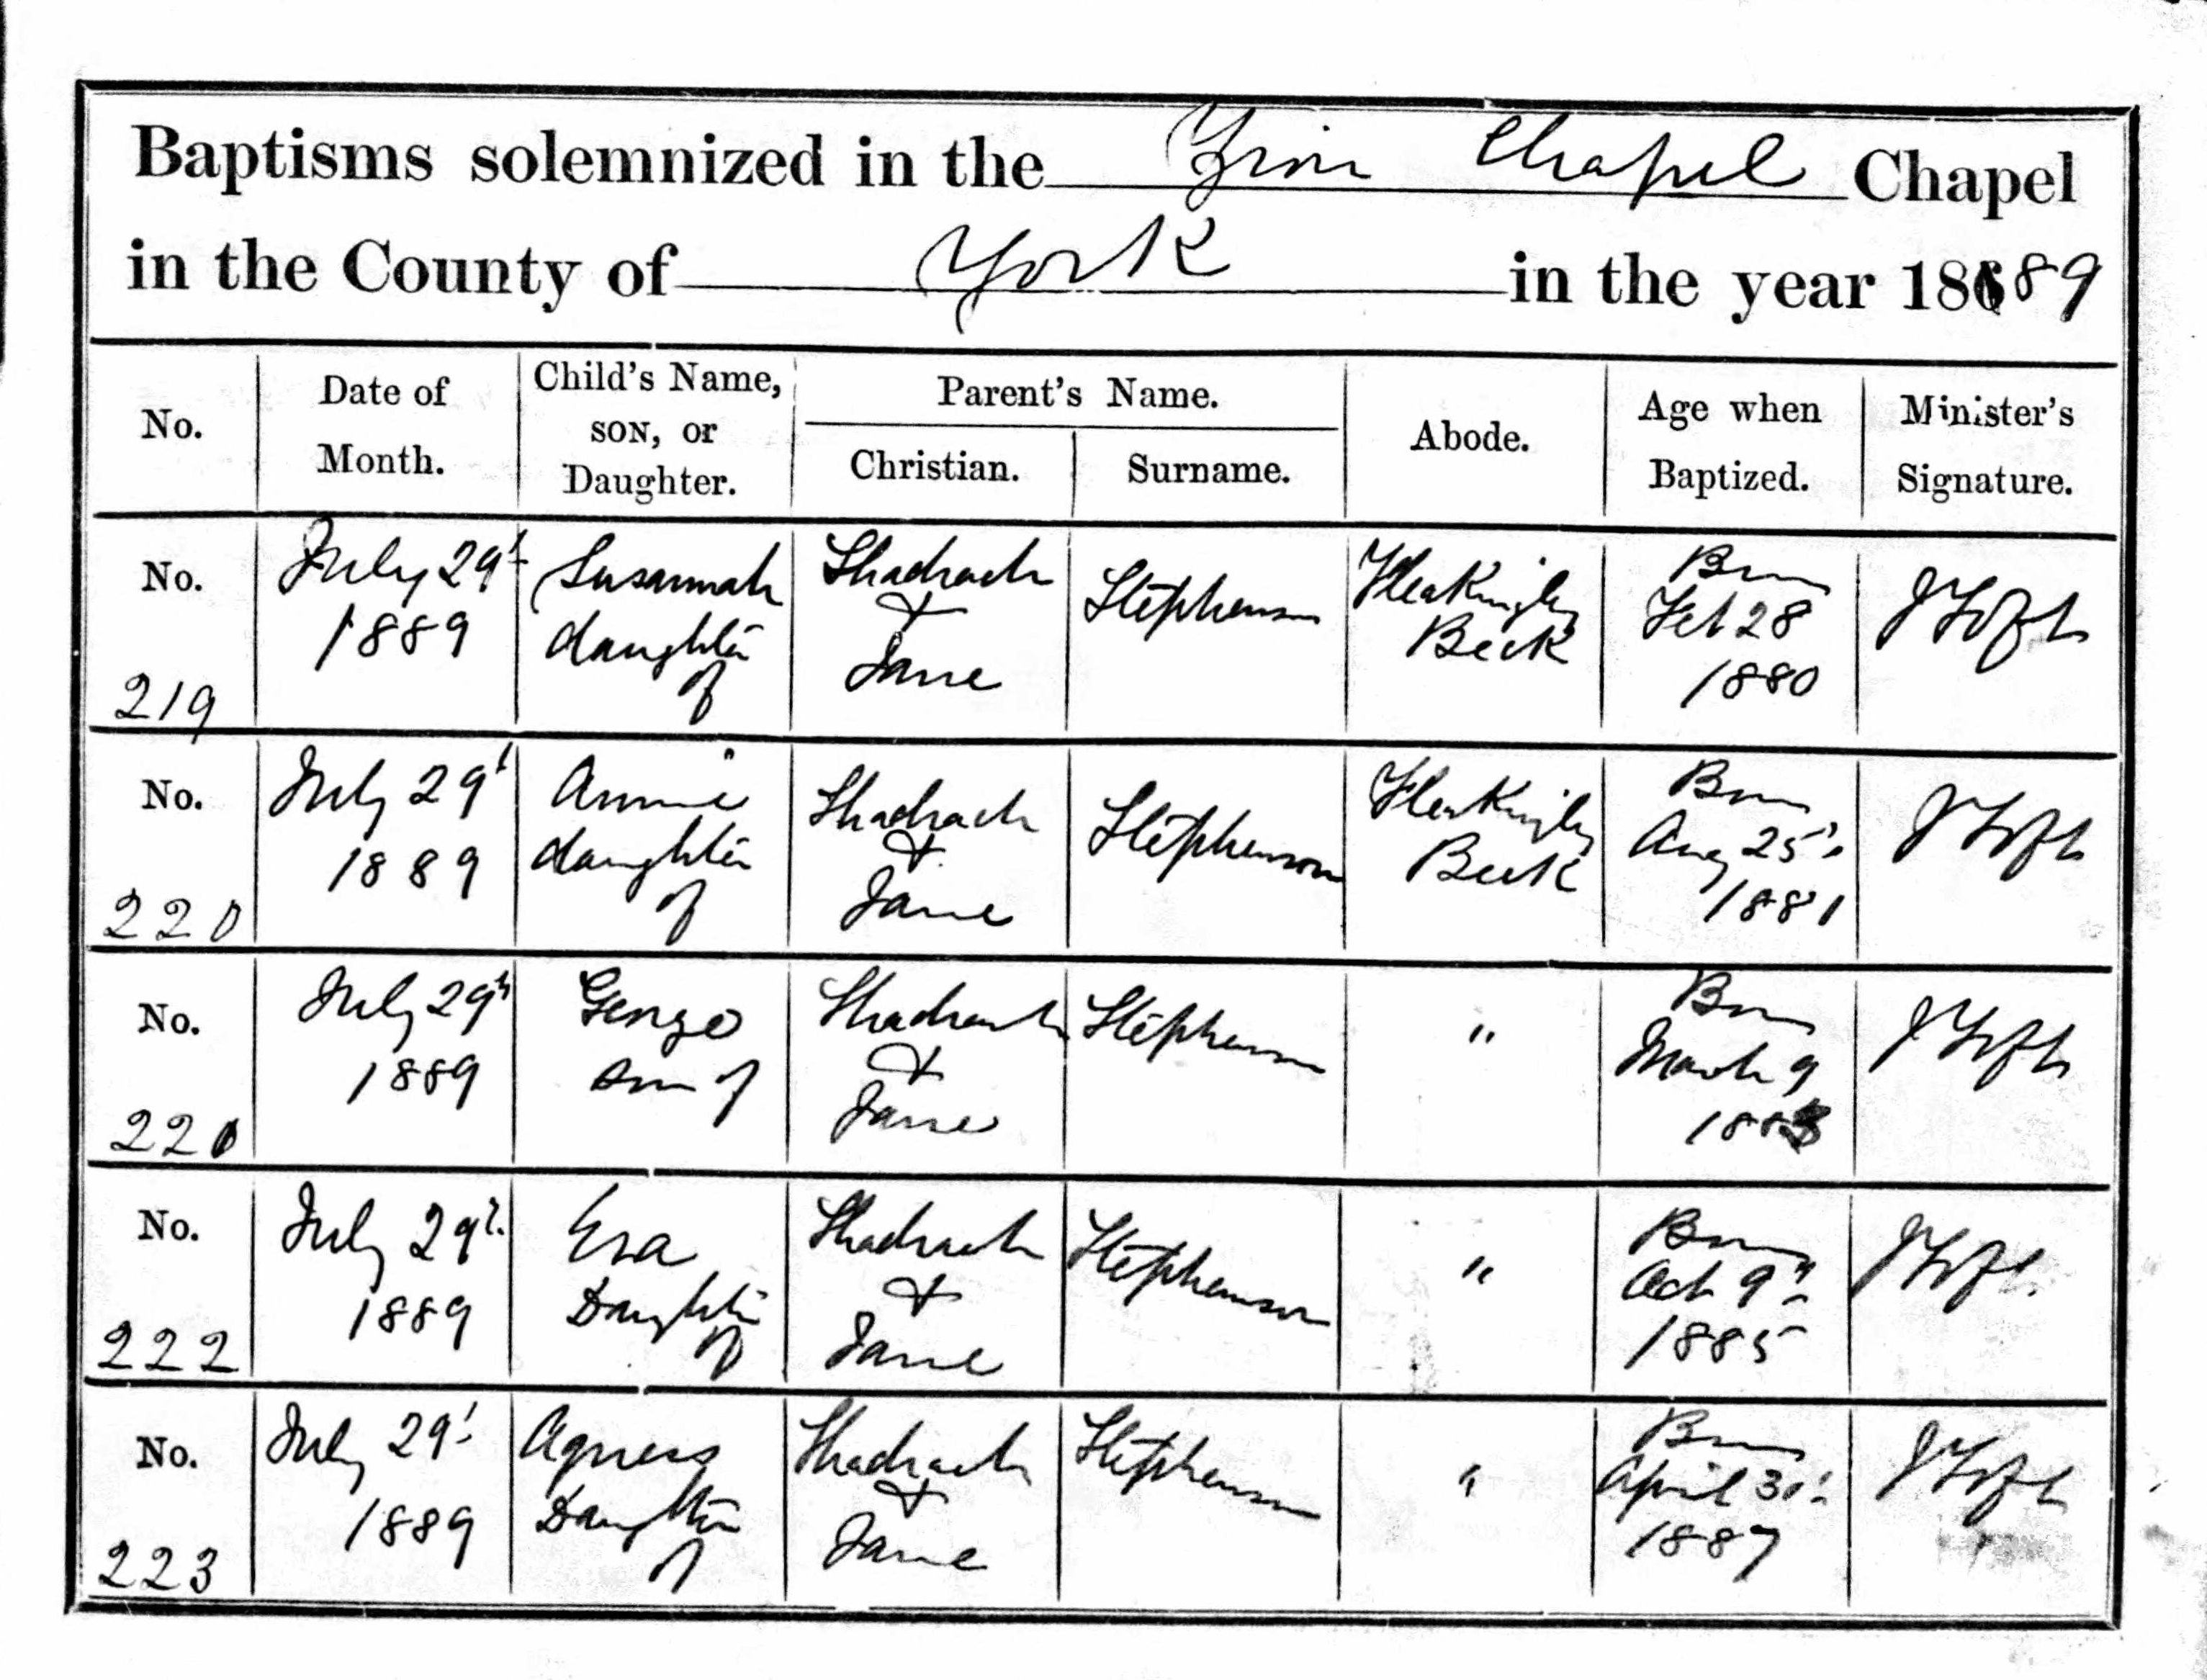 Baptisms solemnized in the Zion Chapel Chapel
in the County of York in the year 18689
No.
Date of
Month.
Child's Name,
SON, or
Daughter.
Parent's Name.
Christian.
Surname.
Abode.
Age when
Baptized.
Minister's
Signature.
No.
219
July 29t
1889
Susannah
daughter
of
Shadrach
&
Jane
Stephenson
Fleakingley
Beck
Born
Feb 28
1880
No.
220
July 29t
1889
Annie
daughter
of
Shadrach
&
Jane
Stephenson
Fleakingley
Beck
Born
Aug 25
1881
No.
221
July 29th
1889
George
son of
Shadrach
&
Jane
Stephenson
"
Born
March 9
1883
No.
222
July 29
1889
Eva
Daughter
of
Shadrach
&
Jane
Stephenson
"
Born
Oct 9th
1885
No.
223
July 29
1889
Agness
Daughter
of
Shadrach
&
Jane
Stephenson
"
Born
April 30
1887